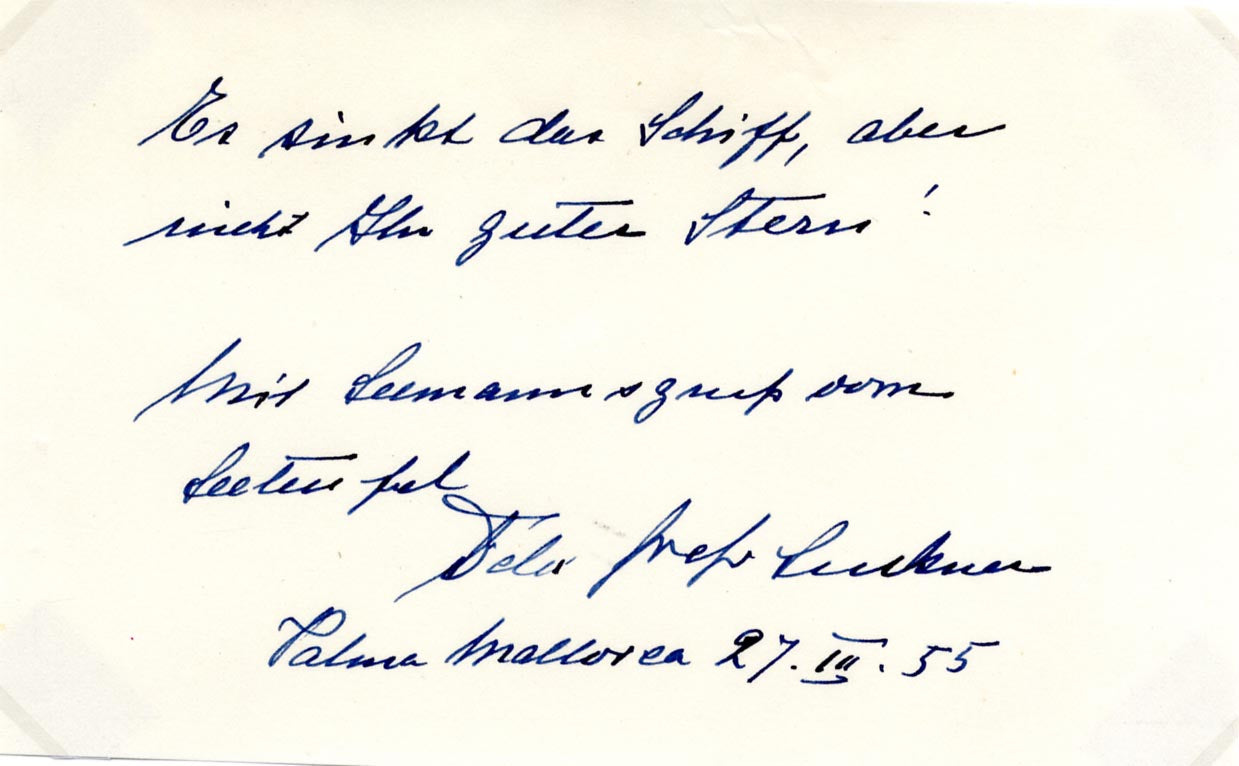 Es sinkt das Schiff, aber
nicht Ihr guter Stern!
Mit Seemannsgruß vom
Seeteufel
Felix Graf Luckner
Palma Mallorca 27. III. 55